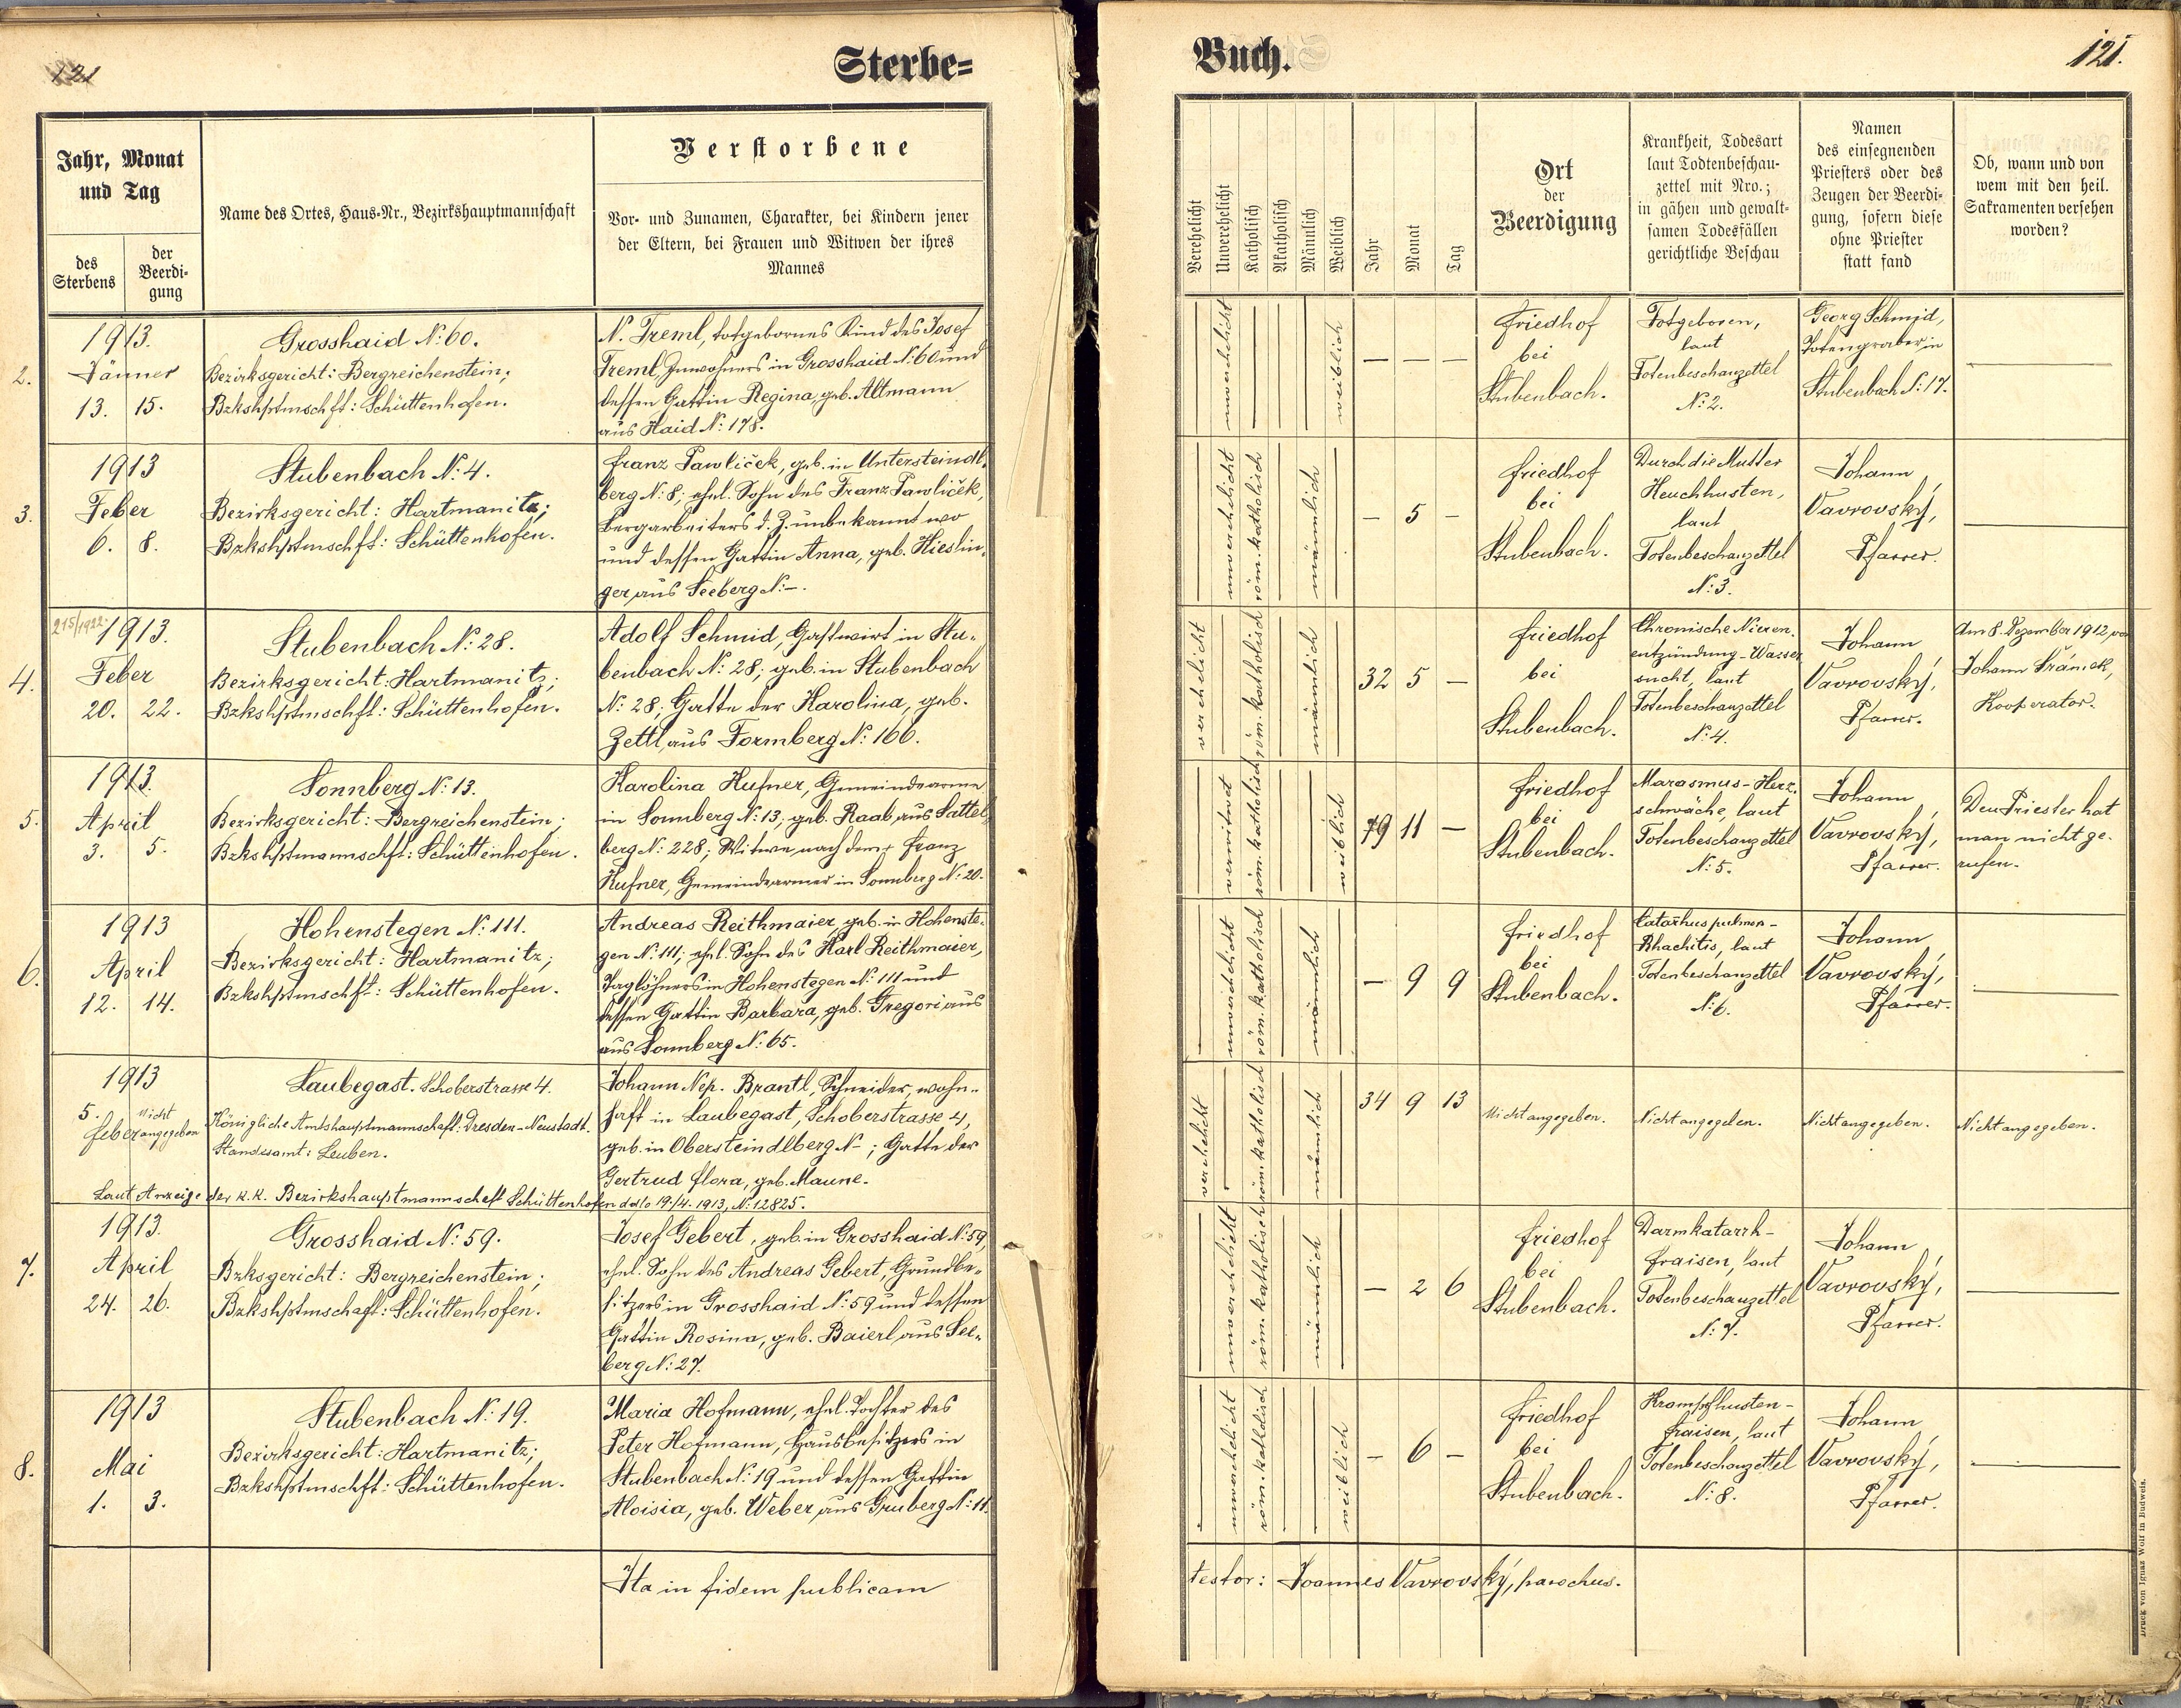 121
Sterbe-
Jahr, Monat
und Tag
des
Sterbens
der
Beerdi-
gung
Name des Ortes, Haus-Nr., Bezirkshauptmannschaft
Verstorbene
Vor- und Zunamen, Charakter, bei Kindern jener
der Eltern, bei Frauen und Witwen der ihres
Mannes
2.
1913.
Jänner
13. 15.
Grosshaid N: 60.
Bezirksgericht: Bergreichenstein;
Bzkshptmschft: Schüttenhofen.
N. Treml, totgebornes Kind des Josef
Treml, Inwohners in Grosshaid N: 60 und
dessen Gattin Regina, geb. Altmann
aus Haid N: 178.
3.
1913
Feber
6. 8.
Stubenbach N: 4.
Bezirksgericht: Hartmanitz;
Bzkshptmschft: Schüttenhofen.
Franz Pawliček, geb. in Untersteindl-
berg N: 8; ehel. Sohn des Franz Pawliček,
Bergarbeiters d. Z. unbekannt wo
und dessen Gattin Anna, geb. Hieslin-
ger aus Seeberg N: -.
4.
215/1922
1913.
Feber
20. 22.
Stubenbach N: 28.
Bezirksgericht: Hartmanitz;
Bzkshptmschft: Schüttenhofen.
Adolf Schmid, Gastwirt in Stu-
benbach N: 28; geb. in Stubenbach
N: 28; Gatte der Karolina, geb.
Zettl, aus Formberg N: 166.
5.
1913.
April
3. 5.
Sonnberg N: 13.
Bezirksgericht: Bergreichenstein;
Bzkshptmannschft: Schüttenhofen.
Karolina Hufner, Gemeindearme
in Sonnberg N: 13; geb. Raab, aus Sattel-
berg N: 228; Witwe nach dem + Franz
Hufner, Gemeindearmer in Sonnberg N: 20.
6.
1913
April
12. 14.
Hohenstegen N: 111.
Bezirksgericht: Hartmanitz;
Bzkshptmschft: Schüttenhofen.
Andreas Reithmaier, geb. in Hohenste-
gen N: 111; ehel. Sohn des Karl Reithmaier,
Taglöhners in Hohenstegen N: 111 und
dessen Gattin Barbara, geb. Gregori aus
aus Sonnberg N: 65.
1913
5.
Feber
nicht
angegeben
Laubegast. Schoberstrasse 4.
Königliche Amtshauptmannschaft: Dresden-Neustadt.
Standesamt: Leuben.
Johann Nep. Brantl, Schneider, wohn-
haft in Laubegast, Schoberstrasse 4,
geb. in Obersteindlberg N - ; Gatte der
Gertrud Flora, geb. Maune.
Laut Anzeige der k.k. Bezirkshauptmannschaft Schüttenhofen ddto 19/4. 1913, N: 12825.
7.
1913.
April
24. 26.
Grosshaid N: 59.
Bzksgericht: Bergreichenstein;
Bzkshptmschaft: Schüttenhofen.
Josef Gebert, geb. in Grosshaid N: 59,
ehel. Sohn des Andreas Gebert, Grundbe-
sitzers in Grosshaid N: 59 und dessen
Gattin Rosina, geb. Baierl aus See-
berg N: 27.
8.
1913
Mai
1. 3.
Stubenbach N: 19.
Bezirksgericht: Hartmanitz;
Bzkshptmschft: Schüttenhofen.
Maria Hofmann, ehel. Tochter des
Peter Hofmann, Hausbesitzers in
Stubenbach N: 19 und dessen Gattin
Aloisia, geb. Weber, aus Gruberg N: 11.
Ita in fidem publicam
Buch.
121.
Verehelicht
Unverehelicht
Katholisch
Akatholisch
Männlich
Weiblich
Jahr
Monat
Tag
Ort
der
Beerdigung
Krankheit, Todesart
laut Todtenbeschau-
zettel mit Nro.;
in gähen und gewalt-
samen Todesfällen
gerichtliche Beschau
Namen
des einsegnenden
Priesters oder des
Zeugen der Beerdi-
gung, sofern diese
ohne Priester
statt fand
Ob, wann und von
wem mit den heil.
Sakramenten versehen
worden?
unverehelicht
weiblich
— — —
Friedhof
bei
Stubenbach.
Totgeboren,
laut
Totenbeschauzettel
N: 2.
Georg Schmid,
Totengraber in
Stubenbach N: 17.
unverehelicht
röm. katholisch
männlich
— 5 —
Friedhof
bei
Stubenbach.
Durch die Mutter
Keuchhusten,
laut
Totenbeschauzettel
N: 3.
Johann
Vavrovský,
Pfarrer.
verehelicht
röm. katholisch
männlich
32 5 —
Friedhof
bei
Stubenbach.
Chronische Nieren-
entzündung - Wasser
sucht, laut
Totenbeschauzettel
N: 4.
Johann
Vavrovský,
Pfarrer.
Am 8. Dezember 1912, von
Johann Šránek,
Kooperator.
verwitwet
röm. katholisch
weiblich
79 11 —
Friedhof
bei
Stubenbach.
Marasmus - Herz-
schwäche, laut
Totenbeschauzettel
N: 5.
Johann
Vavrovský,
Pfarrer.
Den Priester hat
man nicht ge-
rufen.
unverehelicht
röm. katholisch
männlich
— 9 9
Friedhof
bei
Stubenbach.
Catarrhus pulmon-
Rhachitis, laut
Totenbeschauzettel
N: 6.
Johann
Vavrovský,
Pfarrer.
verehelicht
röm. katholisch
männlich
34 9 13
Nicht angegeben.
Nicht angegeben.
Nicht angegeben.
Nicht angegeben.
unverehelicht
röm. katholisch
männlich
— 2 6
Friedhof
bei
Stubenbach.
Darmkatarrh-
fraisen, laut
Totenbeschauzettel
N: 7.
Johann
Vavrovský,
Pfarrer.
unverehelicht
röm. katholisch
weiblich
— 6 —
Friedhof
bei
Stubenbach.
Krampfhusten-
fraisen, laut
Totenbeschauzettel
N: 8.
Johann
Vavrovský,
Pfarrer.
testor: Joannes Vavrovský, parochus.
Druck von Ignaz Wolf in Budweis.